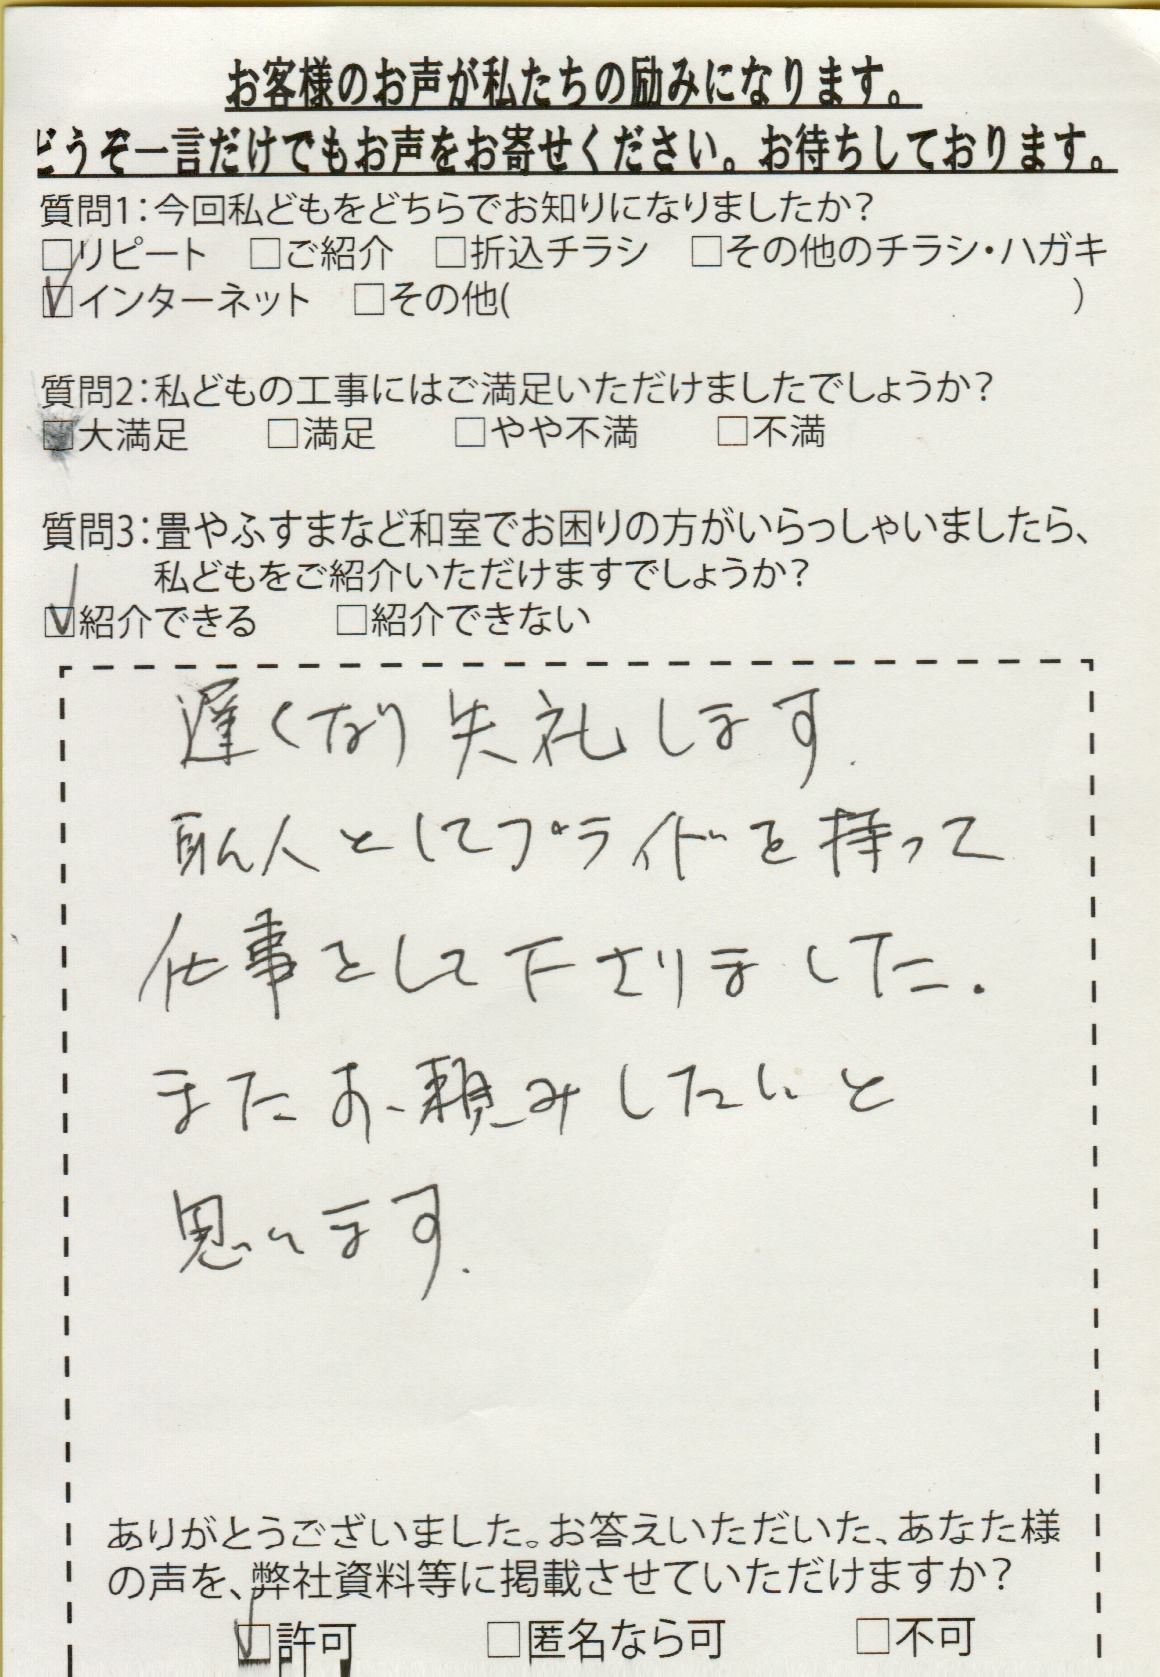 お客様のお声が私たちの励みになります。
どうぞ一言だけでもお声をお寄せください。お待ちしております。
質問1：今回私どもをどちらでお知りになりましたか？
□リピート □ご紹介 □折込チラシ □その他のチラシ・ハガキ
☑インターネット □その他( )
質問2：私どもの工事にはご満足いただけましたでしょうか？
■大満足 □満足 □やや不満 □不満
質問3：畳やふすまなど和室でお困りの方がいらっしゃいましたら、
私どもをご紹介いただけますでしょうか？
☑紹介できる □紹介できない
遅くなり失礼します.
職人としてプライドを持って
仕事をして下さりました.
またお頼みしたいと
思います.
ありがとうございました。お答えいただいた、あなた様
の声を、弊社資料等に掲載させていただけますか？
☑許可 □匿名なら可 □不可